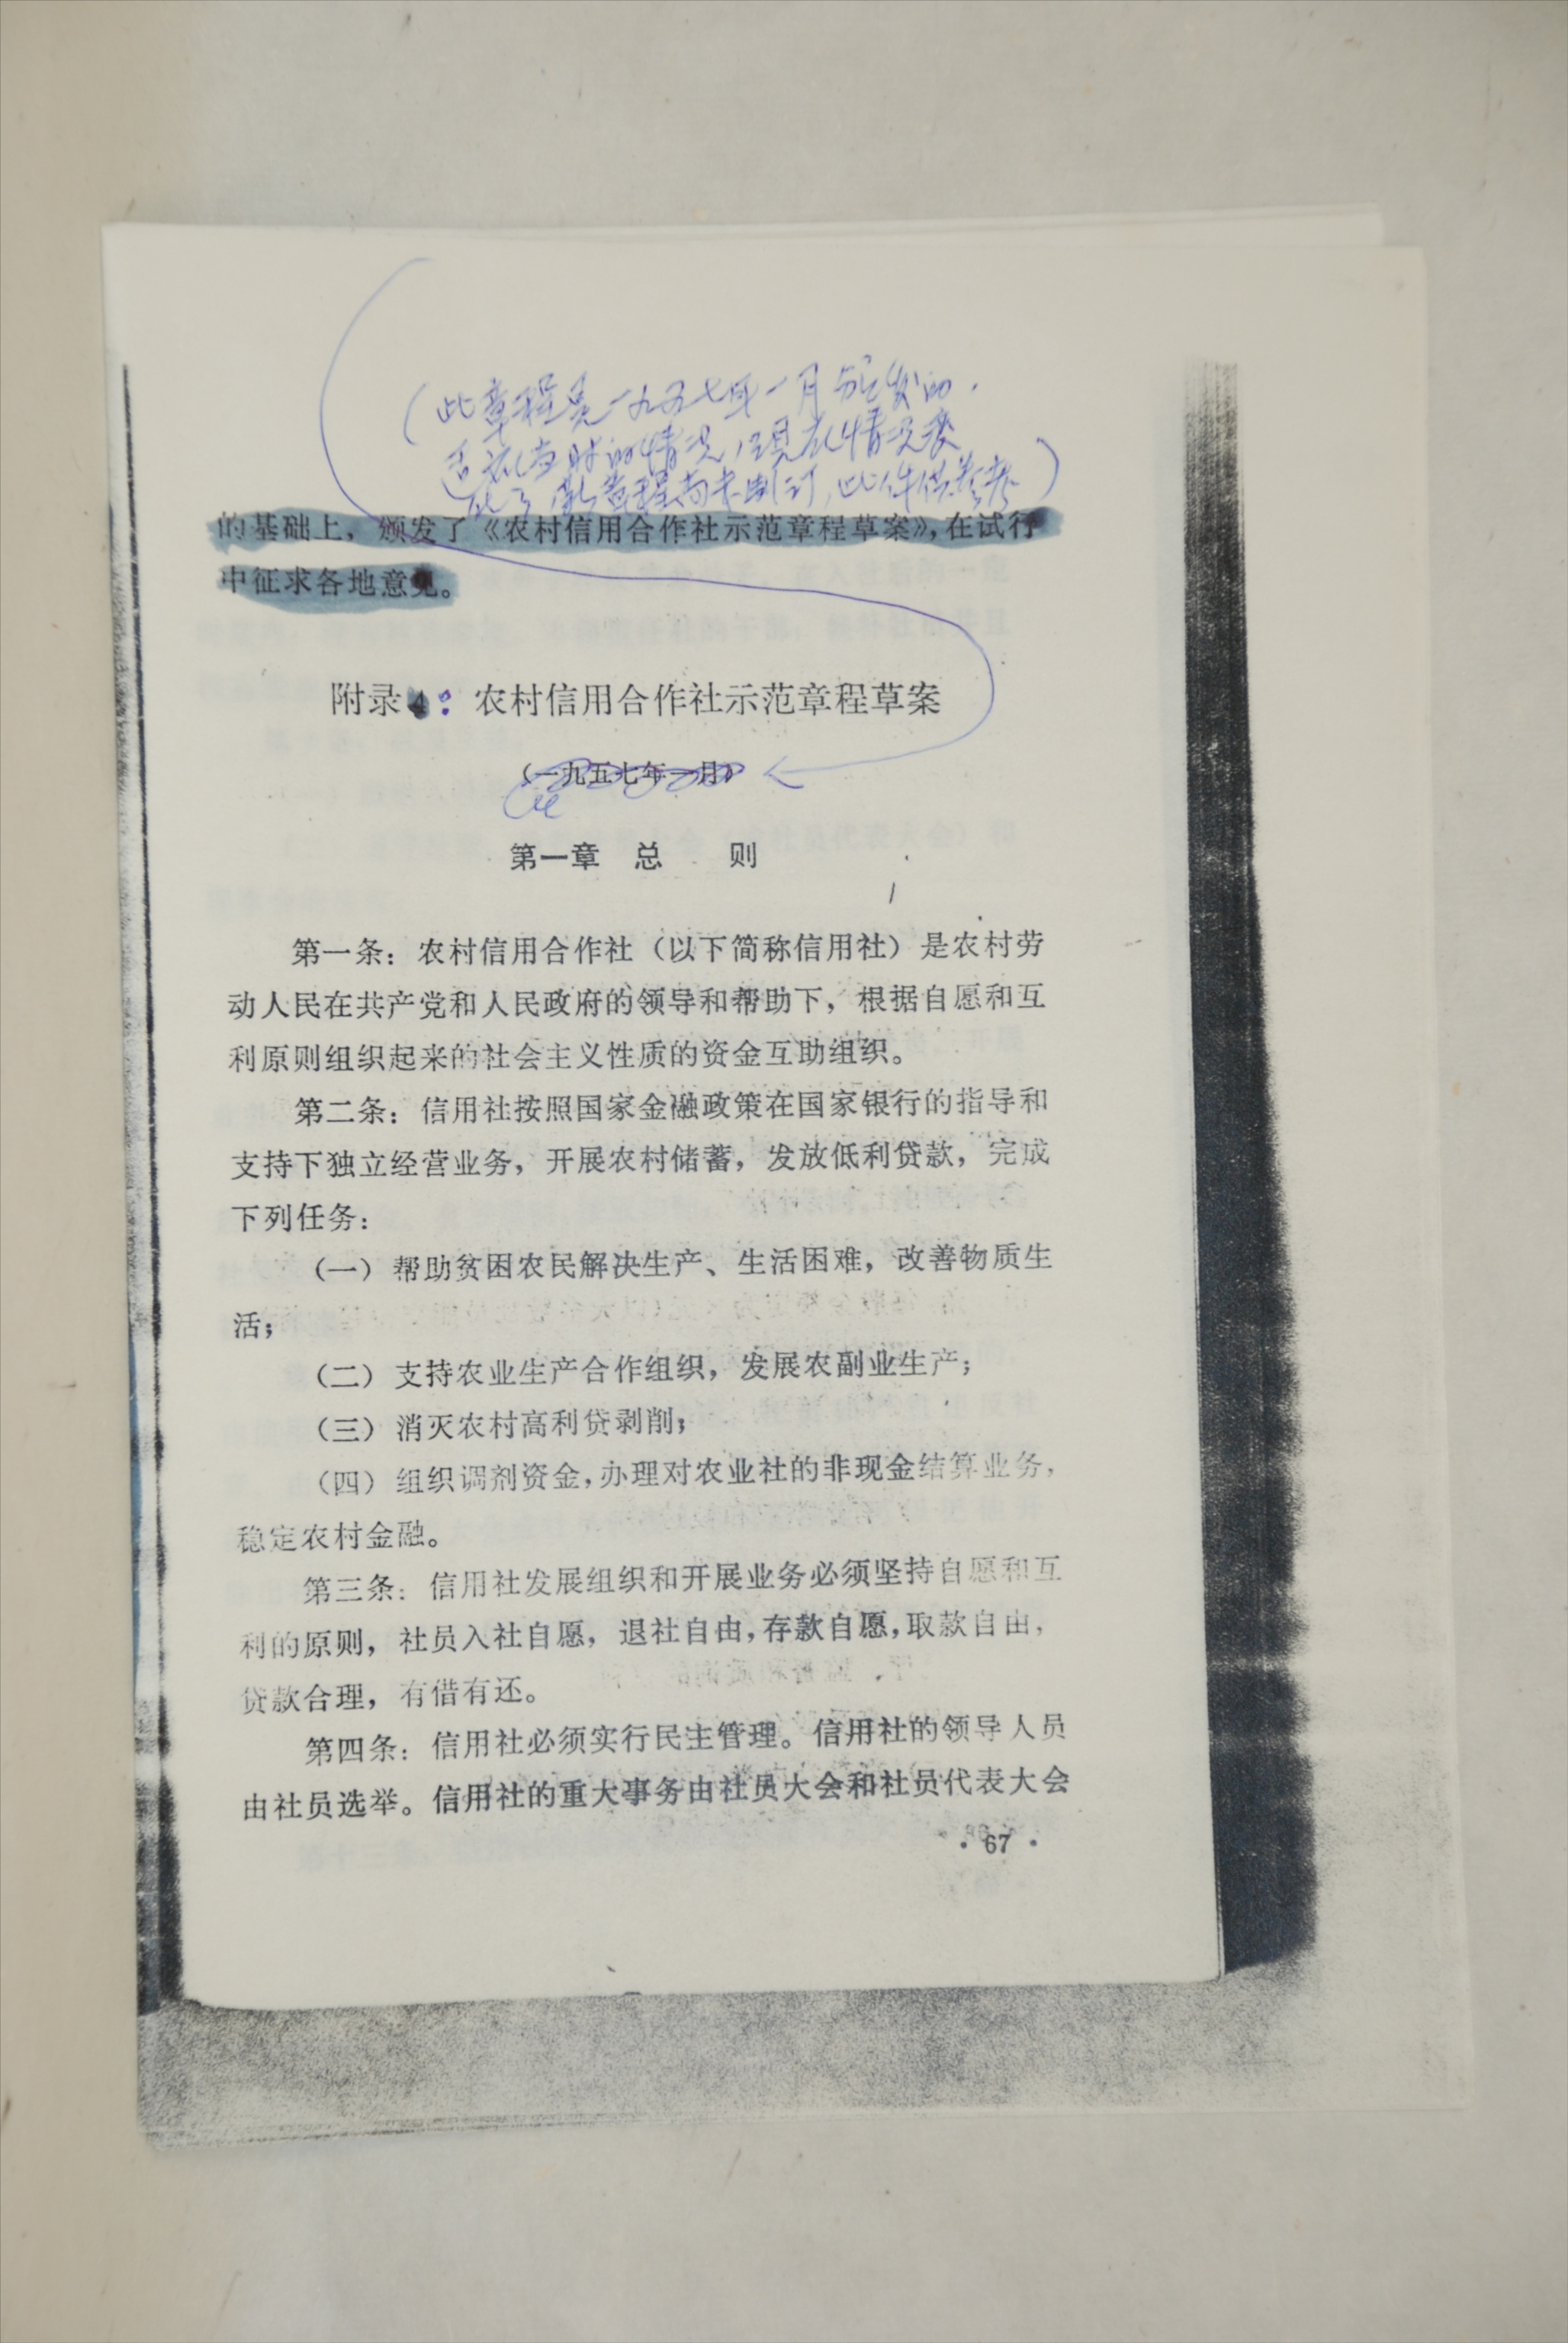 （此章程是一九五七年一月颁发的.
适于当时的情况,现在情况变
化了,新章程尚未制订,此件供参考）
的基础上，颁发了《农村信用合作社示范章程草案》，在试行
中征求各地意见。
附录4：农村信用合作社示范章程草案
（一九五七年一月）
第一章 总 则
第一条：农村信用合作社（以下简称信用社）是农村劳
动人民在共产党和人民政府的领导和帮助下，根据自愿和互
利原则组织起来的社会主义性质的资金互助组织。
第二条：信用社按照国家金融政策在国家银行的指导和
支持下独立经营业务，开展农村储蓄，发放低利贷款，完成
下列任务：
（一）帮助贫困农民解决生产、生活困难，改善物质生
活；
（二）支持农业生产合作组织，发展农副业生产；
（三）消灭农村高利贷剥削；
（四）组织调剂资金，办理对农业社的非现金结算业务，
稳定农村金融。
第三条：信用社发展组织和开展业务必须坚持自愿和互
利的原则，社员入社自愿，退社自由，存款自愿，取款自由，
贷款合理，有借有还。
第四条：信用社必须实行民主管理。信用社的领导人员
由社员选举。信用社的重大事务由社员大会和社员代表大会
· 67 ·